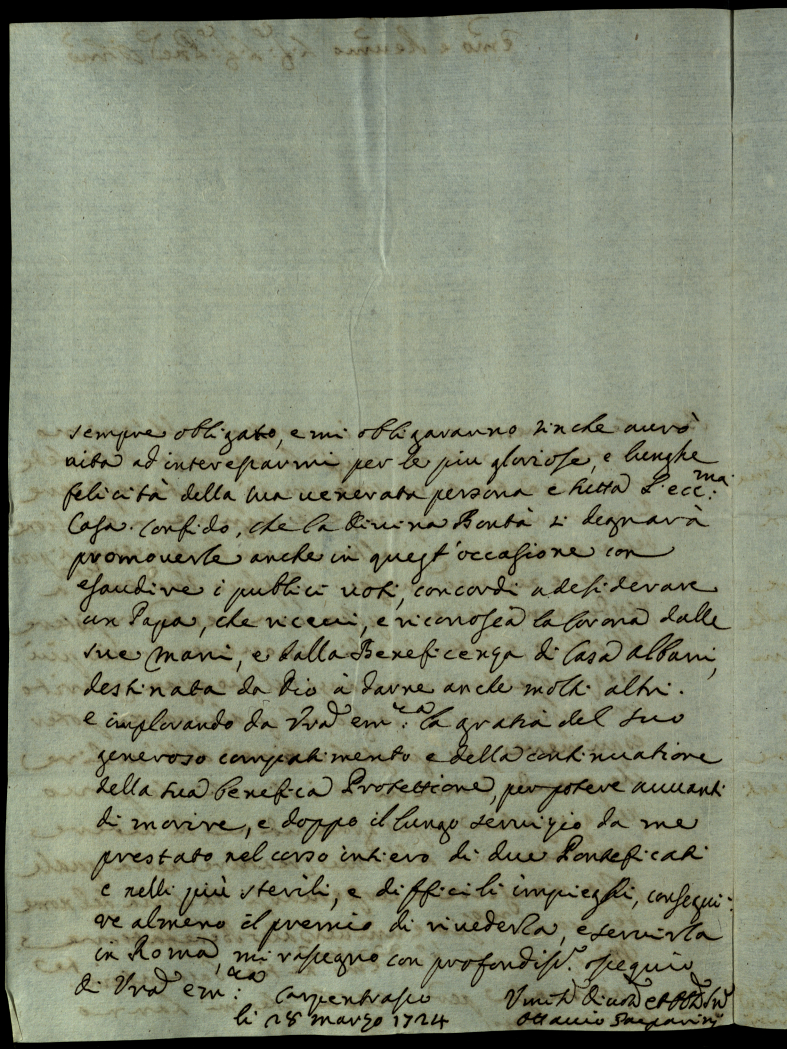 sempre obligato, e mi obligaranno sinche averò
vita ad interessarmi per le più gloriose, e lunghe
felicità della sua venerata persona e tutta l'ecc:ma
Casa. Confido, che la Divina Bontà si degnarà
promoverle anche in quest'occasione con
esaudire i publici voti, concordi a desiderare
un Papa, che ricevi, e riconosca la Corona dalle
sue mani, e dalla Beneficenza di Casa Albani,
destinata da Dio à darne anche molti altri.
e implorando da Vra em:za la gratia del suo
generoso compatimento e della continuatione
della sua benefica Protettione, per potere avvanti
di morire, e doppo il lungo servizio da me
prestato nel corso intiero di due Ponteficati
e nelli più sterili, e difficili impieghi, consegui:
re almeno il premio di rivederla, e servirla
in Roma, mi rassegno con profondiss. ossequio
di Vra em:za Carpentrasso
li 28 marzo 1724
Ottavio Gasparini